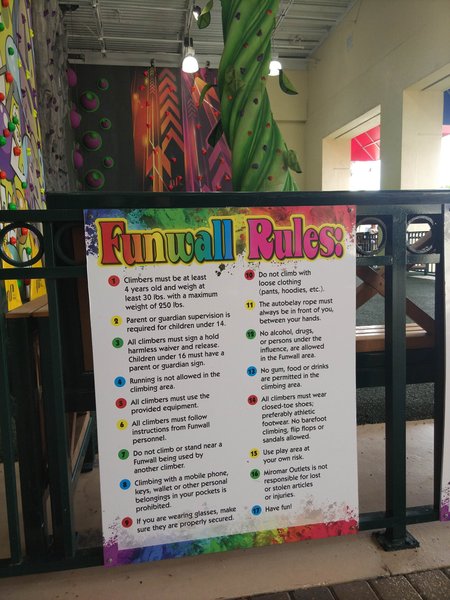 Funwall Rules:
1 Climbers must be at least
4 years old and weigh at
least 30 lbs. with a maximum
weight of 250 lbs.
2 Parent or guardian supervision is
required for children under 14.
3 All climbers must sign a hold
harmless waiver and release.
Children under 16 must have a
parent or guardian sign.
4 Running is not allowed in the
climbing area.
5 All climbers must use the
provided equipment.
6 All climbers must follow
instructions from Funwall
personnel.
7 Do not climb or stand near a
Funwall being used by
another climber.
8 Climbing with a mobile phone,
keys, wallet or other personal
belongings in your pockets is
prohibited.
9 If you are wearing glasses, make
sure they are properly secured.
10 Do not climb with
loose clothing
(pants, hoodies, etc.).
11 The autobelay rope must
always be in front of you,
between your hands.
12 No alcohol, drugs,
or persons under the
influence, are allowed
in the Funwall area.
13 No gum, food or drinks
are permitted in the
climbing area.
14 All climbers must wear
closed-toe shoes;
preferably athletic
footwear. No barefoot
climbing, flip flops or
sandals allowed.
15 Use play area at
your own risk.
16 Miromar Outlets is not
responsible for lost
or stolen articles
or injuries.
17 Have fun!